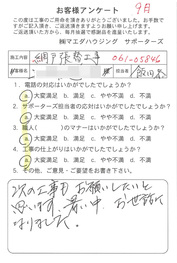 お客様アンケート 9月
この度は工事のご用命を頂きありがとうございました。お手数で
すがご記入頂き、ご返送頂けますようお願い申し上げます。ご返
送いただいた方から、毎月抽選で感謝品を進呈しております。
㈱マエダハウジング サポーターズ
工事名 網戸張替工事 061-05846
お客様名 担当者 飯田
1. 電話の対応はいかがでしたでしょうか?
a. 大変満足 b. 満足 c. やや不満 d. 不満
2. サポーターズ担当者の応対はいかがでしたでしょうか?
a. 大変満足 b. 満足 c. やや不満 d. 不満
3. 職人( )のマナーはいかがでしたでしょうか?
a. 大変満足 b. 満足 c. やや不満 d. 不満
4. 工事の仕上がりはいかがでしたでしょうか?
a. 大変満足 b. 満足 c. やや不満 d. 不満
5. その他、ご意見・ご要望をお書き下さい。
次の工事も お願いしたいと
思います。暑い中 お世話に
なりました。